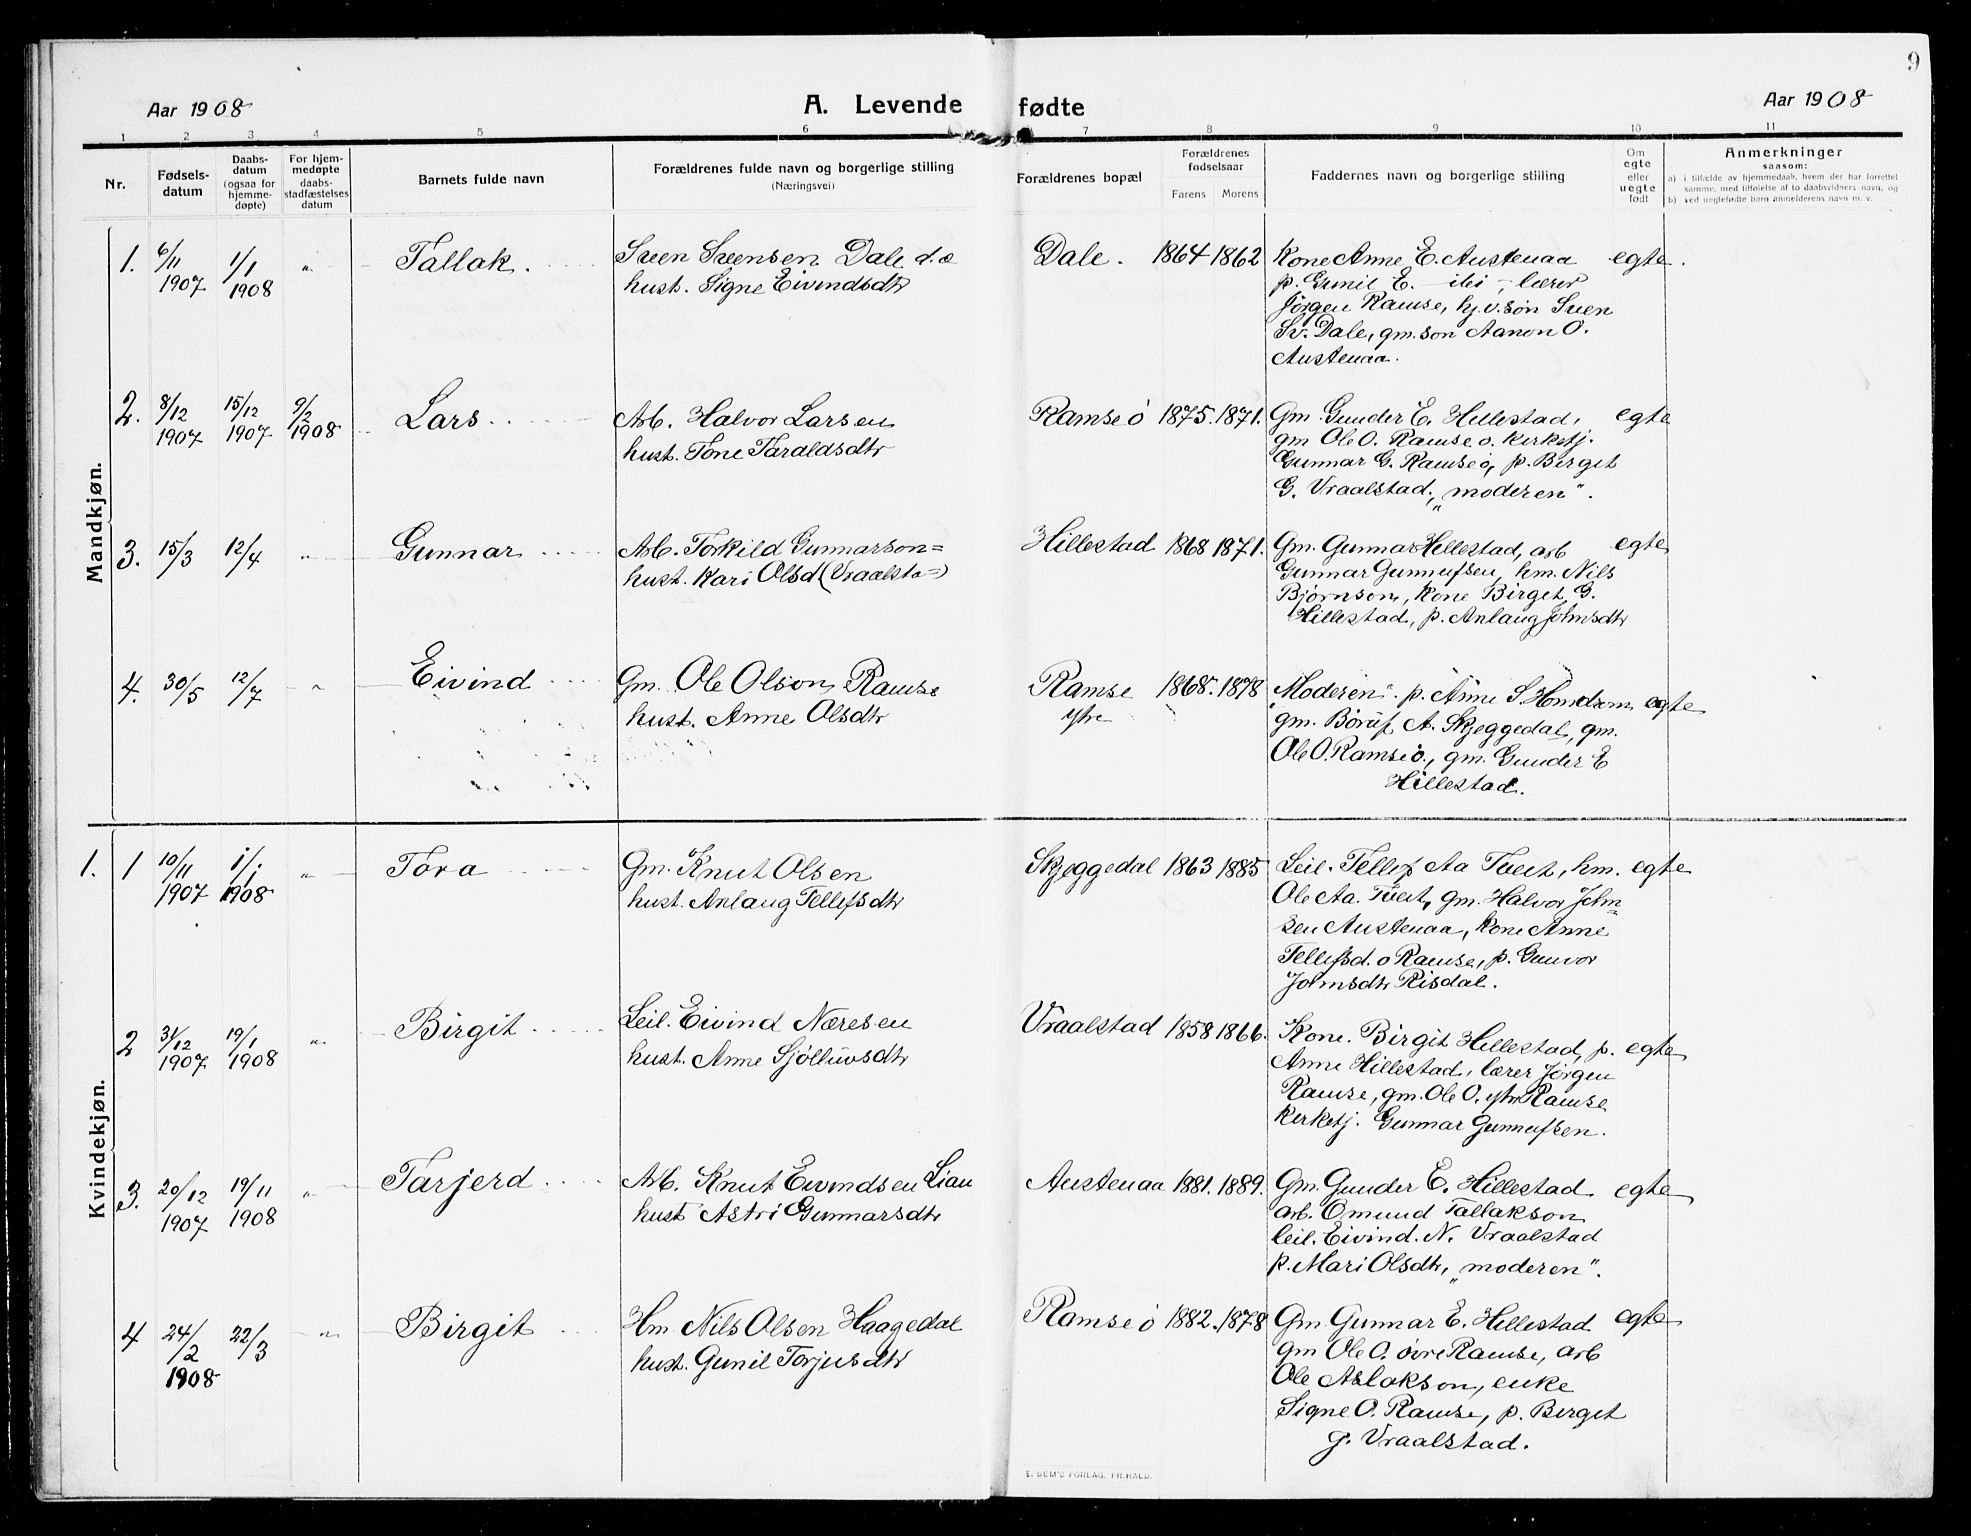 9
Aar 1908
A. Levende fødte
Aar 1908
1 2 3 4 5 6 7 8 9 10 11
Nr.
Fødsels-
datum
Daabs-
datum
(ogsaa for
hjemme-
døpte)
For hjem-
medøpte
daabs-
stadfæstelses
datum
Barnets fulde navn
Forældrenes fulde navn og borgerlige stilling
(Næringsvei)
Forældrenes bopæl
Forældrenes
fødselsaar
Farens Morens
Faddernes navn og borgerlige stilling
Om
egte
eller
uegte
født
Anmerkninger
saasom:
a) i tilfælde av hjemmedaab, hvem der har forrettet
samme, med tilføielse af to daabsvidners navn, og
b) ved uegtefødte barn anmelderens navn m. v.
Mandkjøn.
1. 6/11 1907 1/1 1908 " Tallak.
Sven Svensen Dale d.æ
hust. Signe Eivindsdtr
Dale. 1864 1862
Kone Anne E. Austenaa
p. Gunil E. - ibi -, lærer
Jørgen Ramse, hj.v.søn Sven
Sv. Dale, gm.søn Aanon O.
Austenaa.
egte.
2. 8/12 1907 15/12 1907 9/2 1908 Lars
Arb. Halvor Larsen
hust. Tone Taraldsdtr
Ramse ø 1875. 1871.
Gm. Gunder E. Hillestad,
gm Ole O. Ramse ø. kirketj.
Gunnar G. Ramse ø, p. Birget
G. Vraalstad, „moderen".
egte
3. 15/3 12/4 " Gunnar
Arb. Torkild Gunnarson=
hust. Kari Olsd (Vraalsta=)
Hillestad 1868 1871.
Gm. Gunnar Hillestad, arb
Gunnar Gunnufsen, hm. Nils
Bjørnson, kone Birget G.
Hillestad, p. Anlaug Johnsdtr
egte
4. 30/5 12/7 " Eivind
Gm. Ole Olson Ramse
hust. Anne Olsdtr
Ramse
ytre
1868. 1878
„Moderen". p. Anne S Homdrom
gm. Børuf A. Skjeggedal, gm.
Ole O. Ramse ø., gm. Gunder E
Hillestad.
egte
Kvindekjøn.
1. 1 10/11 1907 1/1 1908 " Tora
Gm. Knut Olsen
hust. Anlaug Tellefsdtr
Skjeggedal 1863 1885
Leil. Tellef Aa Tveit, hm.
Ole Aa. Tveit, gm. Halvor John=
sen Austenaa, kone Anne
Tellefsd. ø Ramse, p. Gunvor
Johnsdtr Risdal.
egte
2 31/12 1907 19/1 1908 " Birgit
Leil. Eivind Næresen
hust. Anne Sjøluvsdtr
Vraalstad 1858 1866.
Kone. Birgit Hillestad, p.
Anne Hillestad, lærer Jørgen
Ramse, gm. Ole O. ytr Ramse
kirketj. Gunnar Gunnufsen.
egte
3. 20/12 1907 19/11 1908 " Tarjerd
Arb. Knut Eivindsen Lian
hust Astri Gunnarsdtr
Austenaa 1881. 1889.
Gm. Gunder E. Hillestad
arb. Omund Tallakson
leil. Eivind. N. Vraalstad
p. Mari Olsdtr, „moderen".
egte
4 24/2 1908 22/3 " Birgit
Hm. Nils Olsen Haagedal
hust. Gunil Torjusdtr
Ramse ø 1882. 1878
Gm Gunnar E. Hillestad
gm Ole O. øvre Ramse, arb
Ole Aslakson, enke
Signe O. Ramse, p. Birget
G. Vraalstad.
egte
E. SEM'S FORLAG, FR.HALD.